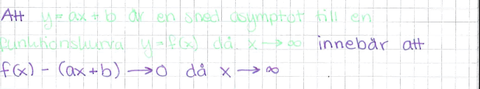 Att y=ax+b är en sned asymptot till en
funktionskurva y=f(x) då x→∞ innebär att
f(x) - (ax+b) →0 då x→∞